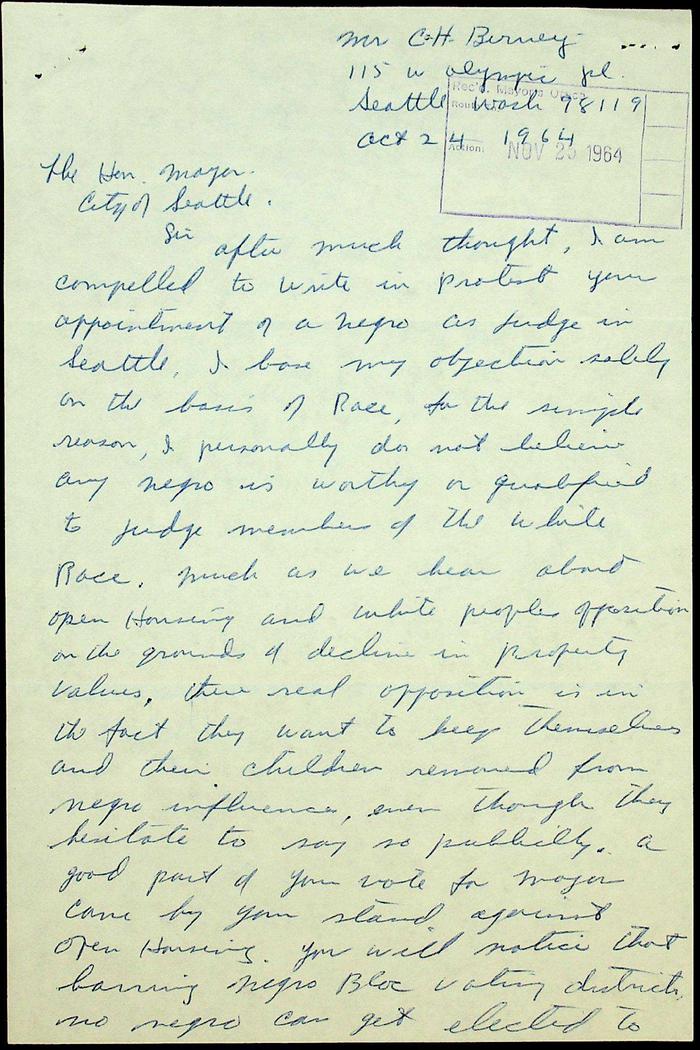 Mr C-H- Berney
115 W Olympic pl.
Seattle Wash 98119
Oct 24 1964
Rec'd. Mayor's Office
Action:
NOV 25 1964
The Hon. Mayor.
City of Seattle.
Sir
after much thought, I am
compelled to write in protest your
appointment of a negro as judge in
Seattle, I base my objection solely
on the basis of Race, for the simple
reason, I personally do not believe
any negro is worthy or qualified
to judge members of the White
Race. Much as we hear about
open Housing and white peoples opposition
on the grounds of decline in property
values, there real opposition is in
the fact they want to keep themselves
and their children removed from
negro influence, even though they
hesitate to say so publicly. a
good part of your vote for mayor
came by your stand against
open Housing. you will notice that
barring negro Bloc voting districts,
no negro can get elected to